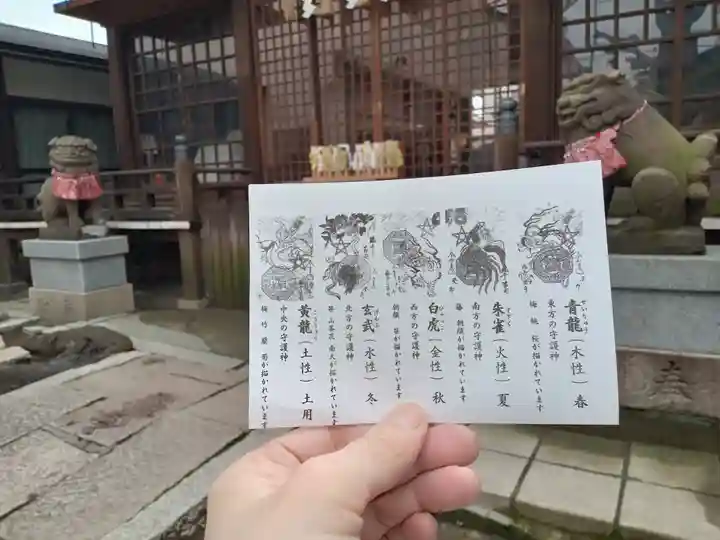 青龍（木性）春
東方の守護神
梅 桃 桜が描かれています
朱雀（火性）夏
南方の守護神
藤 朝顔が描かれています
白虎（金性）秋
西方の守護神
朝顔 菊が描かれています
玄武（水性）冬
北方の守護神
菊 山茶花 南天が描かれています
黄龍（土性）土用
中央の守護神
梅 竹 蘭 菊が描かれています